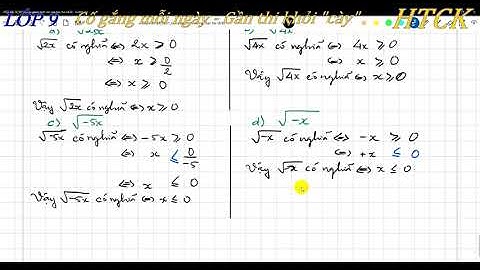 LỚP 9 - Cố gắng mỗi ngày - Gần thi khỏi "cày" . HTCK
a) √2x
√2x có nghĩa ⇔ 2x ⩾ 0
⇔ x ⩾ 0/2
⇔ x ⩾ 0
Vậy √2x có nghĩa ⇔ x ⩾ 0
√4x
√4x có nghĩa ⇔ 4x ⩾ 0
⇔ x ⩾ 0
Vậy √4x có nghĩa ⇔ x ⩾ 0
c) √-5x
√-5x có nghĩa ⇔ -5x ⩾ 0
⇔ x ≤ 0/-5
⇔ x ≤ 0
Vậy √-5x có nghĩa ⇔ x ≤ 0
d) √-x
√-x có nghĩa ⇔ -x ⩾ 0
⇔ +x ≤ 0
Vậy √-x có nghĩa ⇔ x ≤ 0